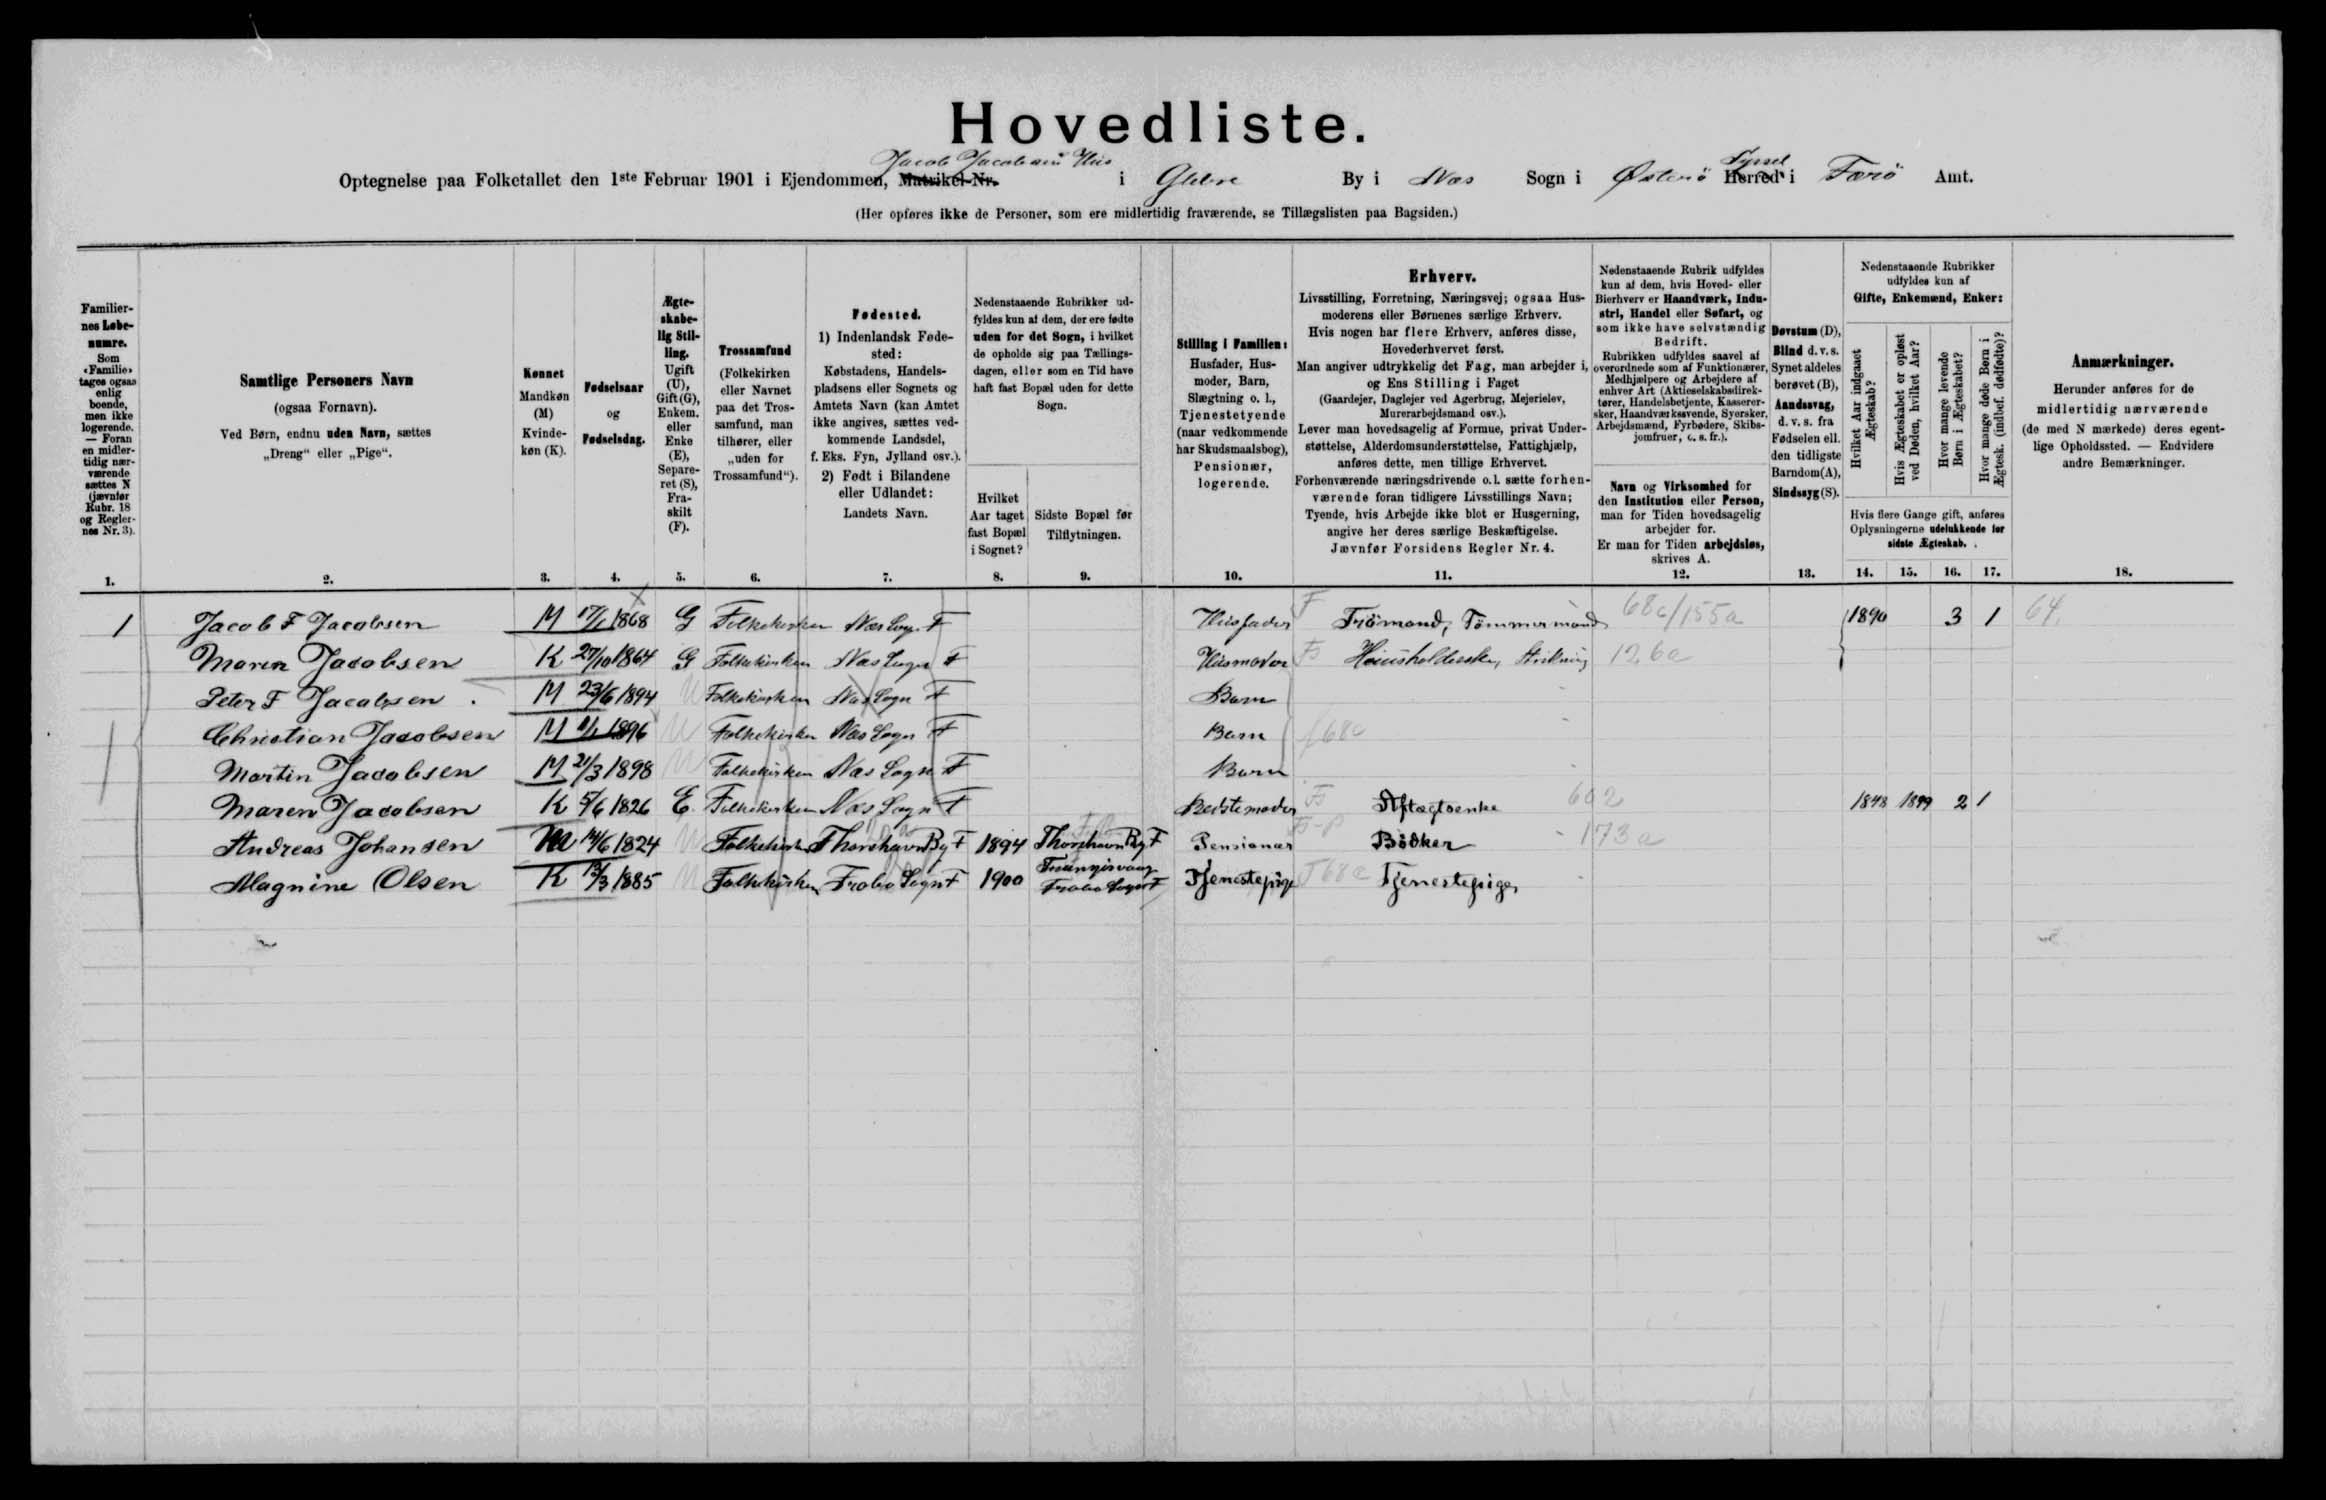 Hovedliste.
Jacob Jacobsens Hus
Optegnelse paa Folketallet den 1ste Februar 1901 i Ejendommen, Matrikel-Nr. i Glibre By i Næs Sogn i Østerö Herred i Færö Amt.
Syssel
(Her opføres ikke de Personer, som ere midlertidig fraværende, se Tillægslisten paa Bagsiden.)
Familier-
nes Løbe-
numre.
Som
«Familie»
tages ogsaa
enlig
boende,
men ikke
logerende.
— Foran
en midler-
tidig nær-
værende
sættes N
(jævnfør
Rubr. 18
og Regler-
nes Nr. 3).
1.
Samtlige Personers Navn
(ogsaa Fornavn).
Ved Børn, endnu uden Navn, sættes
„Dreng“ eller „Pige“.
2.
Kønnet
Mandkøn
(M)
Kvinde-
køn (K).
3.
Fødselsaar
og
Fødselsdag.
4.
Ægte-
skabe-
lig Stil-
ling.
Ugift
(U),
Gift (G),
Enkem.
eller
Enke
(E),
Separe-
ret (S),
Fra-
skilt
(F).
5.
Trossamfund
(Folkekirken
eller Navnet
paa det Tros-
samfund, man
tilhører, eller
„uden for
Trossamfund“).
6.
Fødested.
1) Indenlandsk Føde-
sted:
Købstadens, Handels-
pladsens eller Sognets og
Amtets Navn (kan Amtet
ikke angives, sættes ved-
kommende Landsdel,
f. Eks. Fyn, Jylland osv.).
2) Født i Bilandene
eller Udlandet:
Landets Navn.
7.
Nedenstaaende Rubrikker ud-
fyldes kun af dem, der ere fødte
uden for det Sogn, i hvilket
de opholde sig paa Tællings-
dagen, eller som en Tid have
haft fast Bopæl uden for dette
Sogn.
Hvilket
Aar taget
fast Bopæl
i Sognet?
8.
Sidste Bopæl før
Tilflytningen.
9.
Stilling i Familien:
Husfader, Hus-
moder, Barn,
Slægtning o. l.,
Tjenestetyende
(naar vedkommende
har Skudsmaalsbog),
Pensionær,
logerende.
10.
Erhverv.
Livsstilling, Forretning, Næringsvej; ogsaa Hus-
moderens eller Børnenes særlige Erhverv.
Hvis nogen har flere Erhverv, anføres disse,
Hovederhvervet først.
Man angiver udtrykkelig det Fag, man arbejder i,
og Ens Stilling i Faget
(Gaardejer, Daglejer ved Agerbrug, Mejerielev,
Murerarbejdsmand osv.).
Lever man hovedsagelig af Formue, privat Under-
støttelse, Alderdomsunderstøttelse, Fattighjælp,
anføres dette, men tillige Erhvervet.
Forhenværende næringsdrivende o. l. sætte forhen-
værende foran tidligere Livsstillings Navn;
Tyende, hvis Arbejde ikke blot er Husgerning,
angive her deres særlige Beskæftigelse.
Jævnfør Forsidens Regler Nr. 4.
11.
Nedenstaaende Rubrik udfyldes
kun af dem, hvis Hoved- eller
Bierhverv er Haandværk, Indu-
stri, Handel eller Søfart, og
som ikke have selvstændig
Bedrift.
Rubrikken udfyldes saavel af
overordnede som af Funktionærer,
Medhjælpere og Arbejdere af
enhver Art (Aktieselskabsdirek-
tører, Handelsbetjente, Kasserer-
sker, Haandværkssvende, Syersker,
Arbejdsmænd, Fyrbødere, Skibs-
jomfruer, o. s. fr.).
Navn og Virksomhed for
den Institution eller Person,
man for Tiden hovedsagelig
arbejder for.
Er man for Tiden arbejdsløs,
skrives A.
12.
Døvstum (D),
Blind d. v. s.
Synet aldeles
berøvet (B),
Aandssvag,
d. v. s. fra
Fødselen ell.
den tidligste
Barndom (A),
Sindssyg (S).
13.
Nedenstaaende Rubrikker
udfyldes kun af
Gifte, Enkemænd, Enker:
Hvilket Aar indgaaet
Ægteskab?
Hvis Ægteskabet er opløst
ved Døden, hvilket Aar?
Hvor mange levende
Børn i Ægteskabet?
Hvor mange døde Børn i
Ægtesk. (indbef. dødfødte)?
Hvis flere Gange gift, anføres
Oplysningerne udelukkende for
sidste Ægteskab.
14. 15. 16. 17.
Anmærkninger.
Herunder anføres for de
midlertidig nærværende
(de med N mærkede) deres egent-
lige Opholdssted. — Endvidere
andre Bemærkninger.
18.
1 Jacob F Jacobsen M 17/1 1868 G Folkekirken Næs Sogn F Husfader F Trömand, Tömmermand 68c/155a 1890 3 1 64.
Maren Jacobsen K 27/10 1864 G Folkekirken Næs Sogn F Husmoder Huusholderske, Strikning 126a
Peter F Jacobsen M 23/6 1894 U Folkekirken Næs Sogn F Barn
Christian Jacobsen M 11/1 1896 U Folkekirken Næs Sogn F Barn f68c
Martin Jacobsen M 21/3 1898 U Folkekirken Næs Sogn F Barn
Maren Jacobsen K 5/6 1826 E. Folkekirken Næs Sogn F Bedstemoder Aftægtsenke 602 1848 1899 2 1
Andreas Johansen M 14/6 1824 U Folkekirken Thorshavn By F 1894 Thorshavn By F Pensionær Bödker 173a
Magnine Olsen K 13/3 1885 U Folkekirken Frobø Sogn F 1900 Trungisvaag Frobø Sogn F Tjenestepige T68c Tjenestepige,